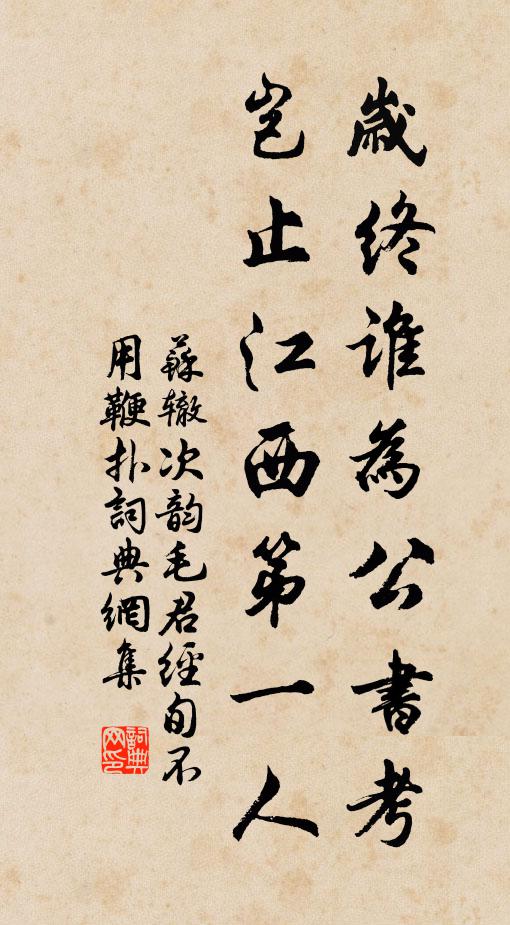 歲終誰為公書考
豈止江西第一人
蘇辙次韵毛君經旬不
用鞭扑詞典網集
詞典
网印